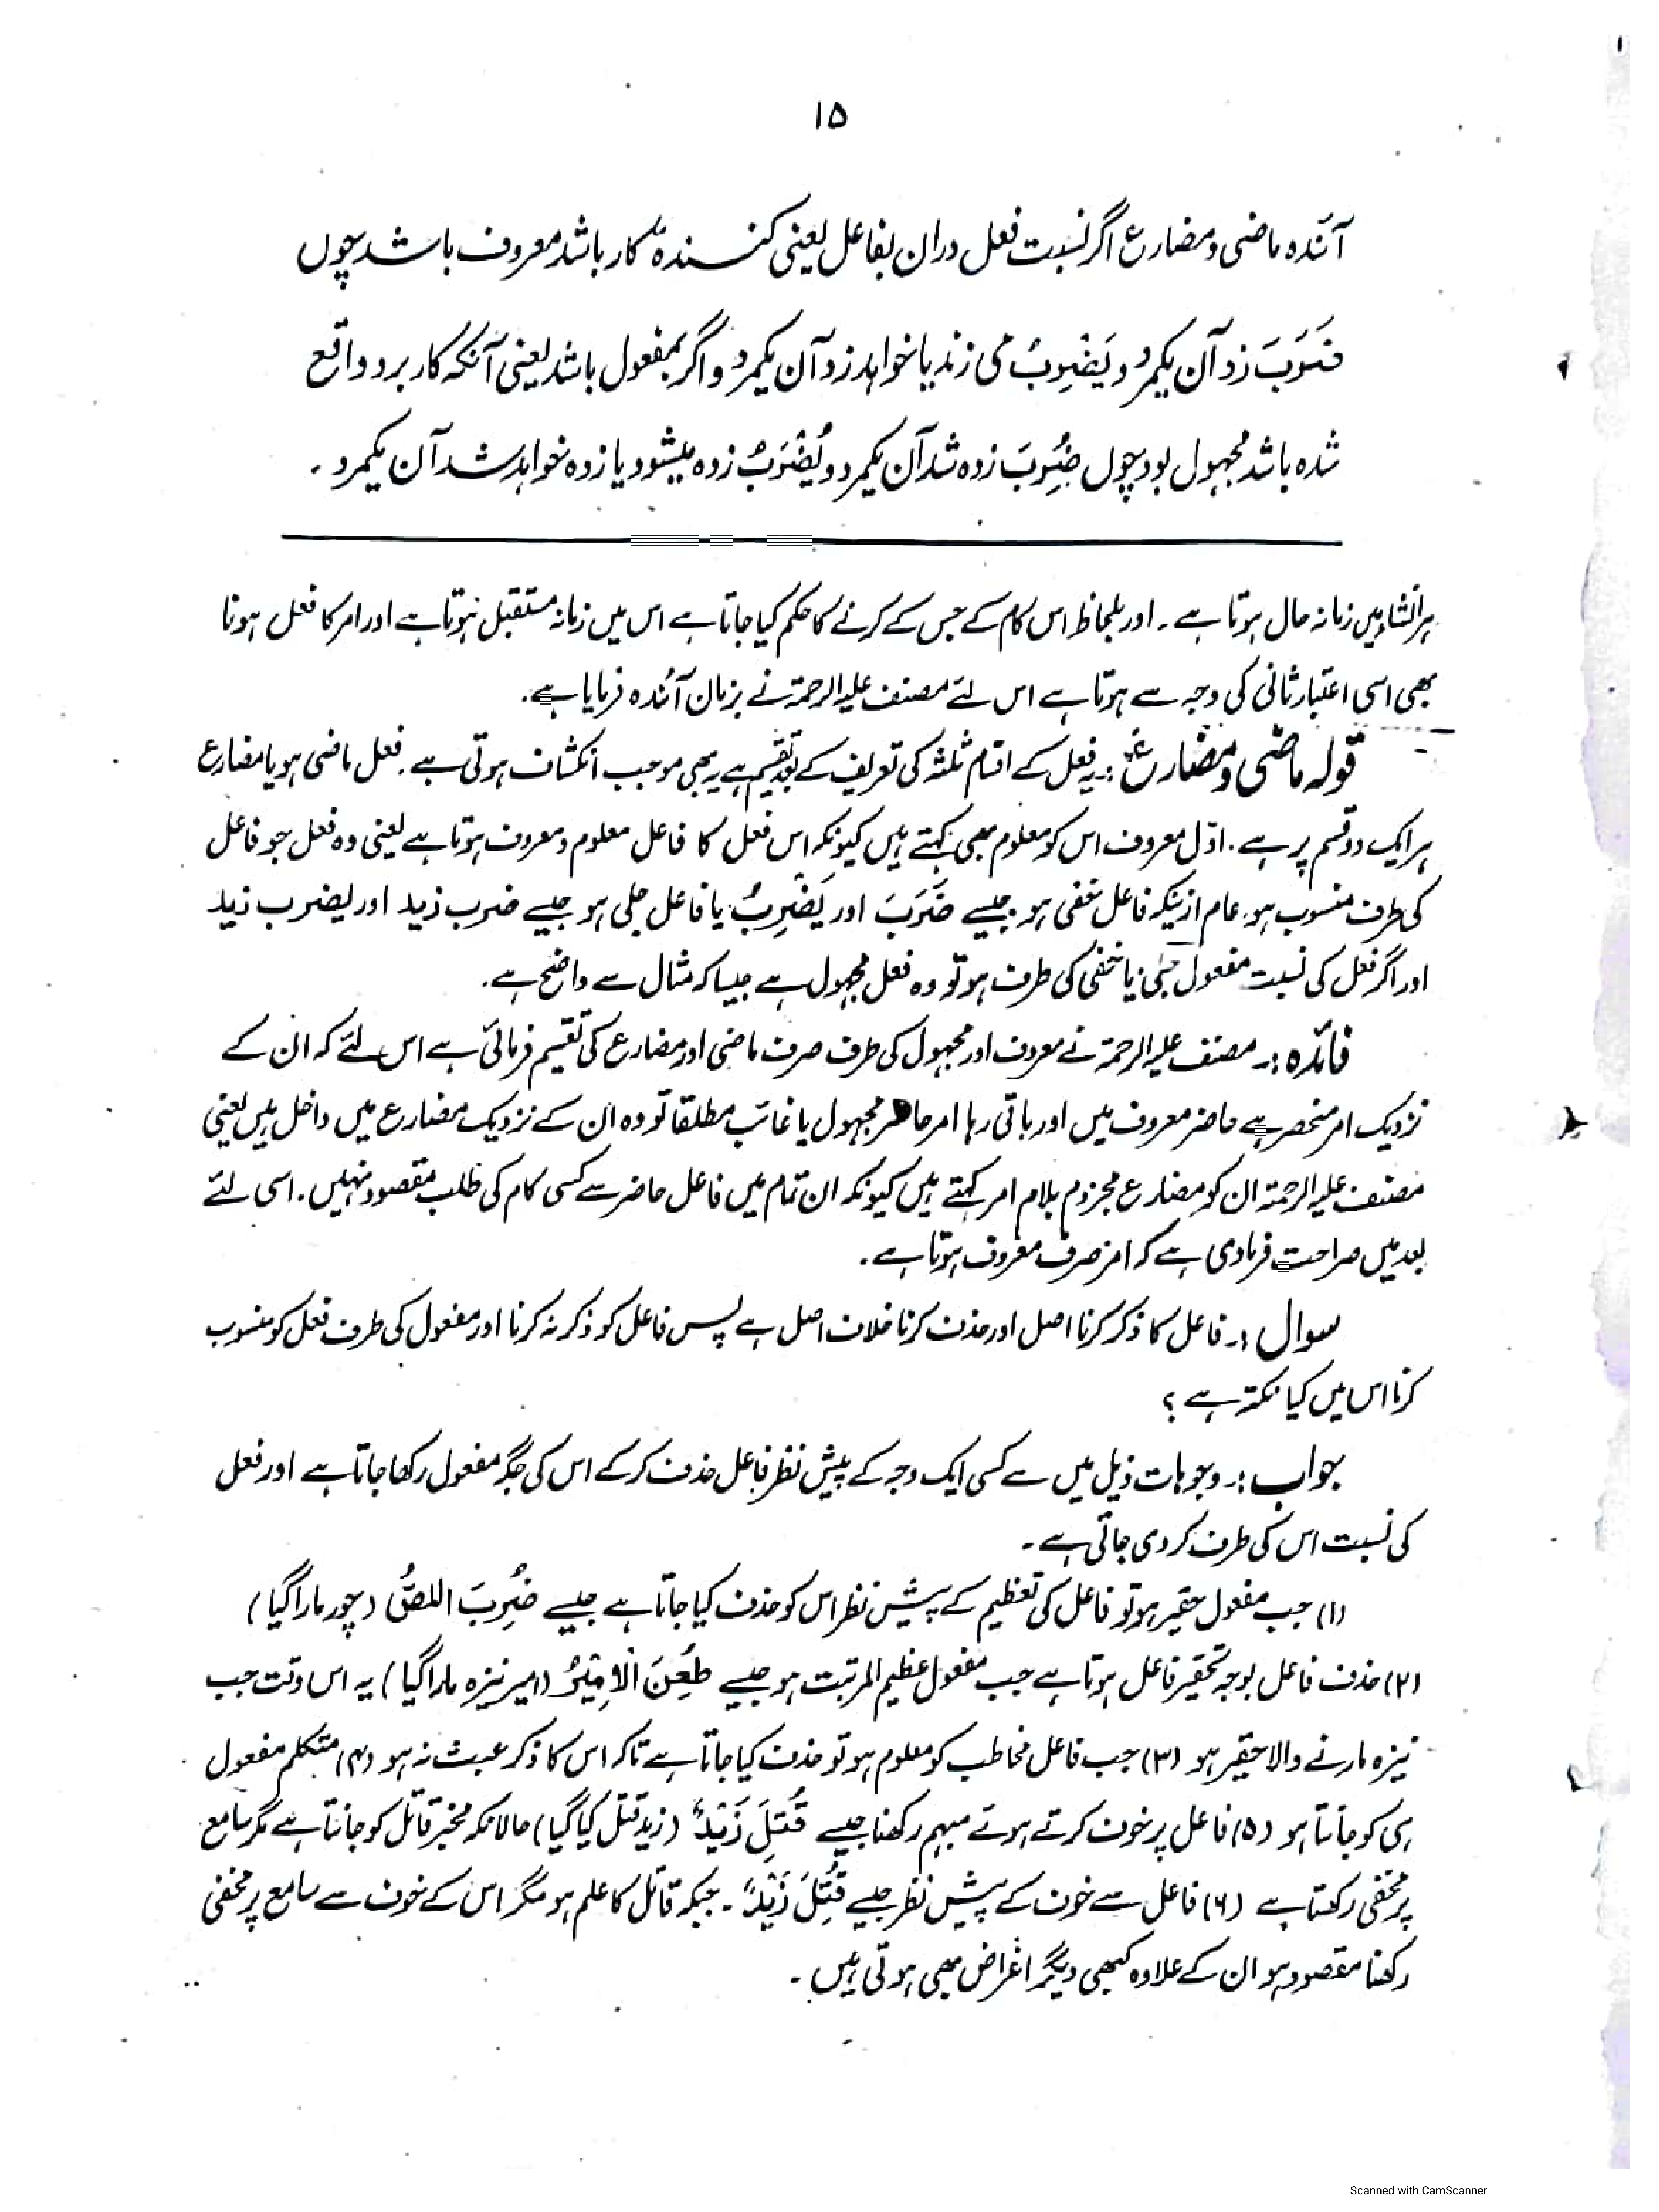 ۱۵
آئندہ ماضی و مضارع اگر نسبت فعل دران بفاعل یعنی کنندہ کار باشد معروف باشد چوں
ضَرَبَ زد آن یکمرد و یَضْرِبُ می زند یا خواہد زد آن یکمرد و اگر بمفعول باشد یعنی آنکہ کار برد واقع
شدہ باشد مجہول بود چوں ضُرِبَ زدہ شد آن یکمرد و یُضْرَبُ زدہ میشود یا زدہ خواہد شد آن یکمرد ۔
ہر انشاء میں زمانہ حال ہوتا ہے ۔ اور بلحاظ اس کام کے جس کے کرنے کا حکم کیا جاتا ہے اس میں زمانہ مستقبل ہوتا ہے اور امر کا فعل ہونا
بھی اسی اعتبار ثانی کی وجہ سے ہوتا ہے اس لئے مصنف علیہ الرحمۃ نے بزمان آئندہ فرمایا ہے ۔
قولہ ماضی و مضارع :۔ یہ فعل کے اقسام ثلثہ کی تعریف کے بعد تقسیم ہے یہ بھی موجب انکشاف ہوتی ہے ۔ فعل ماضی ہو یا مضارع
ہر ایک دو قسم پر ہے ۔ اوّل معروف اس کو معلوم بھی کہتے ہیں کیونکہ اس فعل کا فاعل معلوم و معروف ہوتا ہے یعنی وہ فعل جو فاعل
کی طرف منسوب ہو ۔ عام ازینکہ فاعل خفی ہو جیسے ضَرَبَ اور یَضْرِبُ یا فاعل جلی ہو جیسے ضرب زید اور یضرب زید
اور اگر فعل کی نسبت مفعول جلی یا خفی کی طرف ہو تو وہ فعل مجہول ہے جیسا کہ مثال سے واضح ہے ۔
فائدہ :۔ مصنف علیہ الرحمۃ نے معروف اور مجہول کی طرف صرف ماضی اور مضارع کی تقسیم فرمائی ہے اس لئے کہ ان کے
نزدیک امر منحصر ہے حاضر معروف میں اور باقی رہا امر حاضر مجہول یا غائب مطلقا تو وہ ان کے نزدیک مضارع میں داخل ہیں یعنی
مصنف علیہ الرحمۃ ان کو مضارع مجزوم بلام امر کہتے ہیں کیونکہ ان تمام میں فاعل حاضر سے کسی کام کی طلب مقصود نہیں ۔ اسی لئے
بعد میں صراحت فرمادی ہے کہ امر صرف معروف ہوتا ہے ۔
سوال :۔ فاعل کا ذکر کرنا اصل اور حذف کرنا خلاف اصل ہے پس فاعل کو ذکر نہ کرنا اور مفعول کی طرف فعل کو منسوب
کرنا اس میں کیا نکتہ ہے ؟
جواب :۔ وجوہات ذیل میں سے کسی ایک وجہ کے پیش نظر فاعل حذف کرکے اس کی جگہ مفعول رکھا جاتا ہے اور فعل
کی نسبت اس کی طرف کر دی جاتی ہے ۔
(۱) جب مفعول حقیر ہو تو فاعل کی تعظیم کے پیش نظر اس کو حذف کیا جاتا ہے جیسے ضُرِبَ اللصُّ (چور مارا گیا)
(۲) حذف فاعل بوجہ تحقیر فاعل ہوتا ہے جب مفعول عظیم المرتبت ہو جیسے طُعِنَ الْاَمِیْرُ (امیر نیزہ مارا گیا) یہ اس وقت جب
نیزہ مارنے والا حقیر ہو (۳) جب فاعل مخاطب کو معلوم ہو تو حذف کیا جاتا ہے تاکہ اس کا ذکر عبث نہ ہو (۴) متکلم مفعول
ہی کو جانتا ہو (۵) فاعل پر خوف کرتے ہوئے مبہم رکھنا جیسے قُتِلَ زَیْدٌ (زید قتل کیا گیا) حالانکہ مخبر قاتل کو جانتا ہے مگر سامع
پر مخفی رکھتا ہے (۶) فاعل سے خوف کے پیش نظر جیسے قُتِلَ زَیْدٌ ۔ جبکہ قاتل کا علم ہو مگر اس کے خوف سے سامع پر مخفی
رکھنا مقصود ہو ان کے علاوہ کبھی دیگر اغراض بھی ہوتی ہیں ۔
Scanned with CamScanner